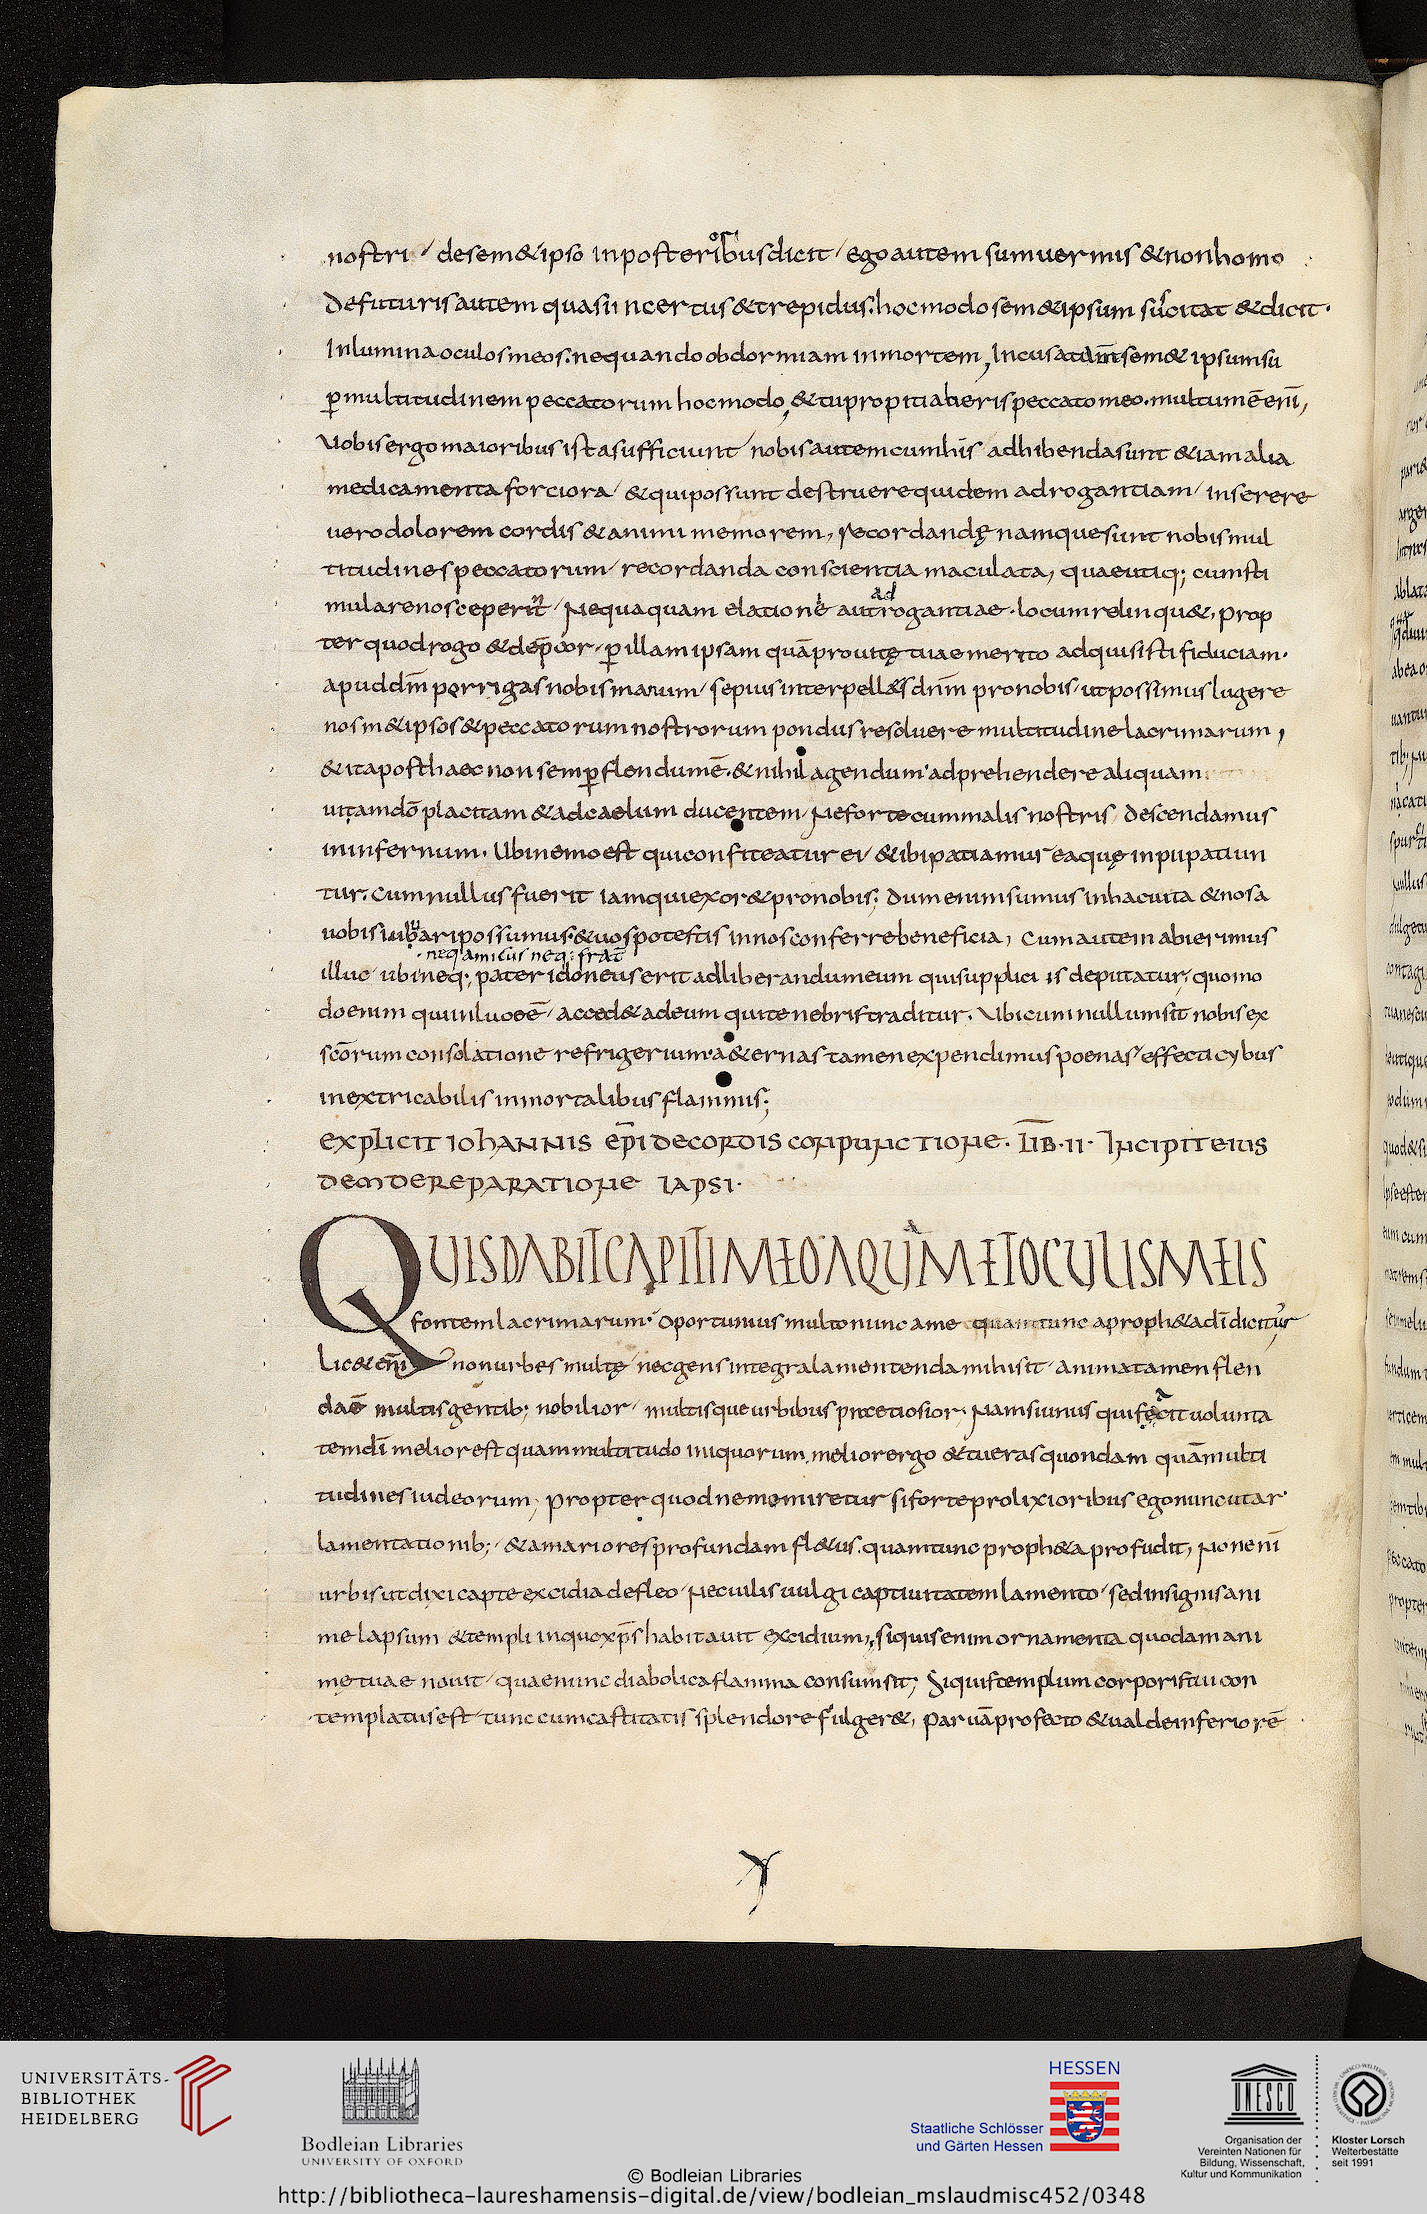 nostri desem&ipso inposterioribus dicit ego autem sum uermis & non homo
De futuris autem quasi incertus & trepidus. hoc modo sem&ipsum suscitat & dicit.
Inlumina oculos meos. ne quando obdormiam in mortem, Incusat sem& ipsum
p̄ multitudinem peccatorum hoc modo, & tu propitiaberis peccato meo. multum ē enī,
Uobis ergo maioribus ista sufficiunt nobis autem cum his adhibenda sunt & iam alia
medicamenta forciora & qui possunt destruere quidem adrogantiam inserere
uero dolorem cordis & animi memorem, recordandę namque sunt nobis mul
titudines peccatorum recordanda conscientia maculata, quae utiq; cum sti
mulare nos ceperit Nequaquam adrogantiae locum relinqu&, Prop
ter quod rogo & dep̄cor p̄ illam ipsam quā pro uitę tuae merito adquisisti fiduciam.
apud dn̄m porrigas nobis manum sepius interpell&s dnm̄ pro nobis ut possimus lugere
nosm&ipsos & peccatorum nostrorum pondus resoluere multitudine lacrimarum,
& ita post haec non semp̄ flendum ē. & nihil agendum adprehendere aliquam
uitam dō placitam & ad caelum ducentem Ne forte cum malis nostris descendamus
in infernum. Ubi nemo est qui confiteatur ei & ibi patiamur eaquę inpii patiun
tur. cum nullus fuerit iam qui exor& pro nobis; dum enim sumus in hac uita & nos a
uobis iubari possumus & uos potestis in nos conferre beneficia, Cum autem abierimus
neq; amicus neq; frat̄
illuc ubi neq; pater idoneus erit ad liberandum eum qui supplici is deputatur, quomo
do enim qui in luce ē acced& ad eum qui tenebris traditur. Ubi cum nullum sit nobis ex
scōrum consolatione refrigerium a&ernas tamen expendimus poenas effecti cybus
inextricabilis inmortalibus flammis;
EXPLICIT IOHANNIS EP̄I DE CORDIS CONPUNCTIONE. LIB. II. INCIPIT EIUS
DEM DE REPARATIONE LAPSI.
QUIS DABIT CAPITI MEO AQUAM ET OCULIS MEIS
fontem lacrimarum oportunius multo nunc a me quam tunc a proph&a dī dicitur
Lic& enī non urbes multę nec gens integra lamentenda mihi sit anima tamen flen
da ē multis gentib; nobilior multisque urbibus praetiosior. Nam si unus qui facit uolunta
tem dī melior est quam multitudo iniquorum, melior ergo & tu eras quondam quā multi
tudines iudeorum, Propter quod nemo miretur si forte prolixioribus ego nunc utar
lamentationib; & amariores profundam fl&us. quam tunc proph&a profudit, Non enī
urbis ut dixi capte excidia defleo Nec uilis uulgi captiuitatem lamento sed insignis ani
me lapsum & templi in quo xp̄s habitauit excidium, si quis enim ornamenta quodam ani
mę tuae nouit quae nunc diabolica flamma consumsit, Si quis templum corporis tui con
templatus est tunc cum castitatis splendore fulger&, paruā profecto & ualde inferiorē
UNIVERSITÄTS-
BIBLIOTHEK
HEIDELBERG
Bodleian Libraries
UNIVERSITY OF OXFORD
HESSEN
Staatliche Schlösser
und Gärten Hessen
UNESCO
Organisation der
Vereinten Nationen für
Bildung, Wissenschaft,
Kultur und Kommunikation
Kloster Lorsch
Welterbestätte
seit 1991
© Bodleian Libraries
http://bibliotheca-laureshamensis-digital.de/view/bodleian_mslaudmisc452/0348